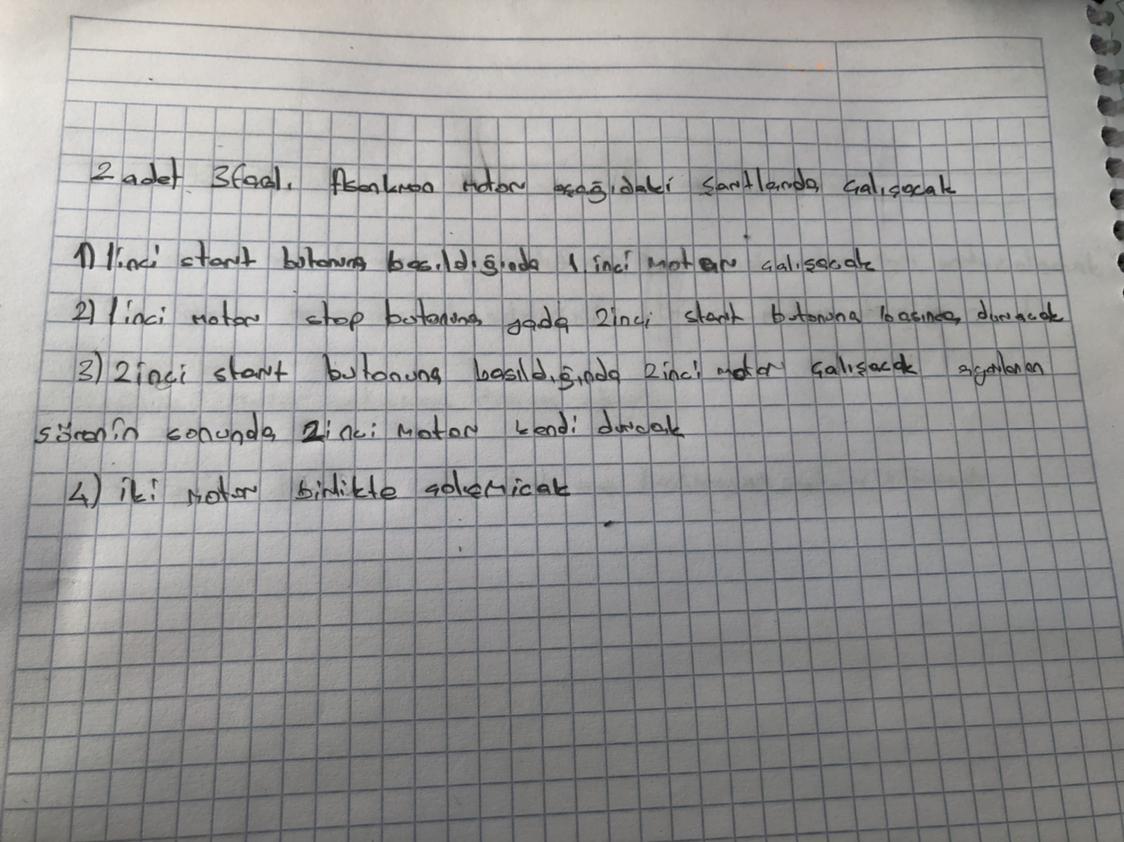 2 adet 3faal. Asenkron motor aşağıdaki şartlarda çalışacak
1) 1inci start butonuna basıldığında 1inci motor çalışacak
2) 1inci motor stop butonuna yada 2inci start butonuna basınca duracak
3) 2inci start butonuna basıldığında 2inci motor çalışacak ayarlanan
sürenin sonunda 2inci motor kendi durcak
4) iki motor birlikte çalışmicak